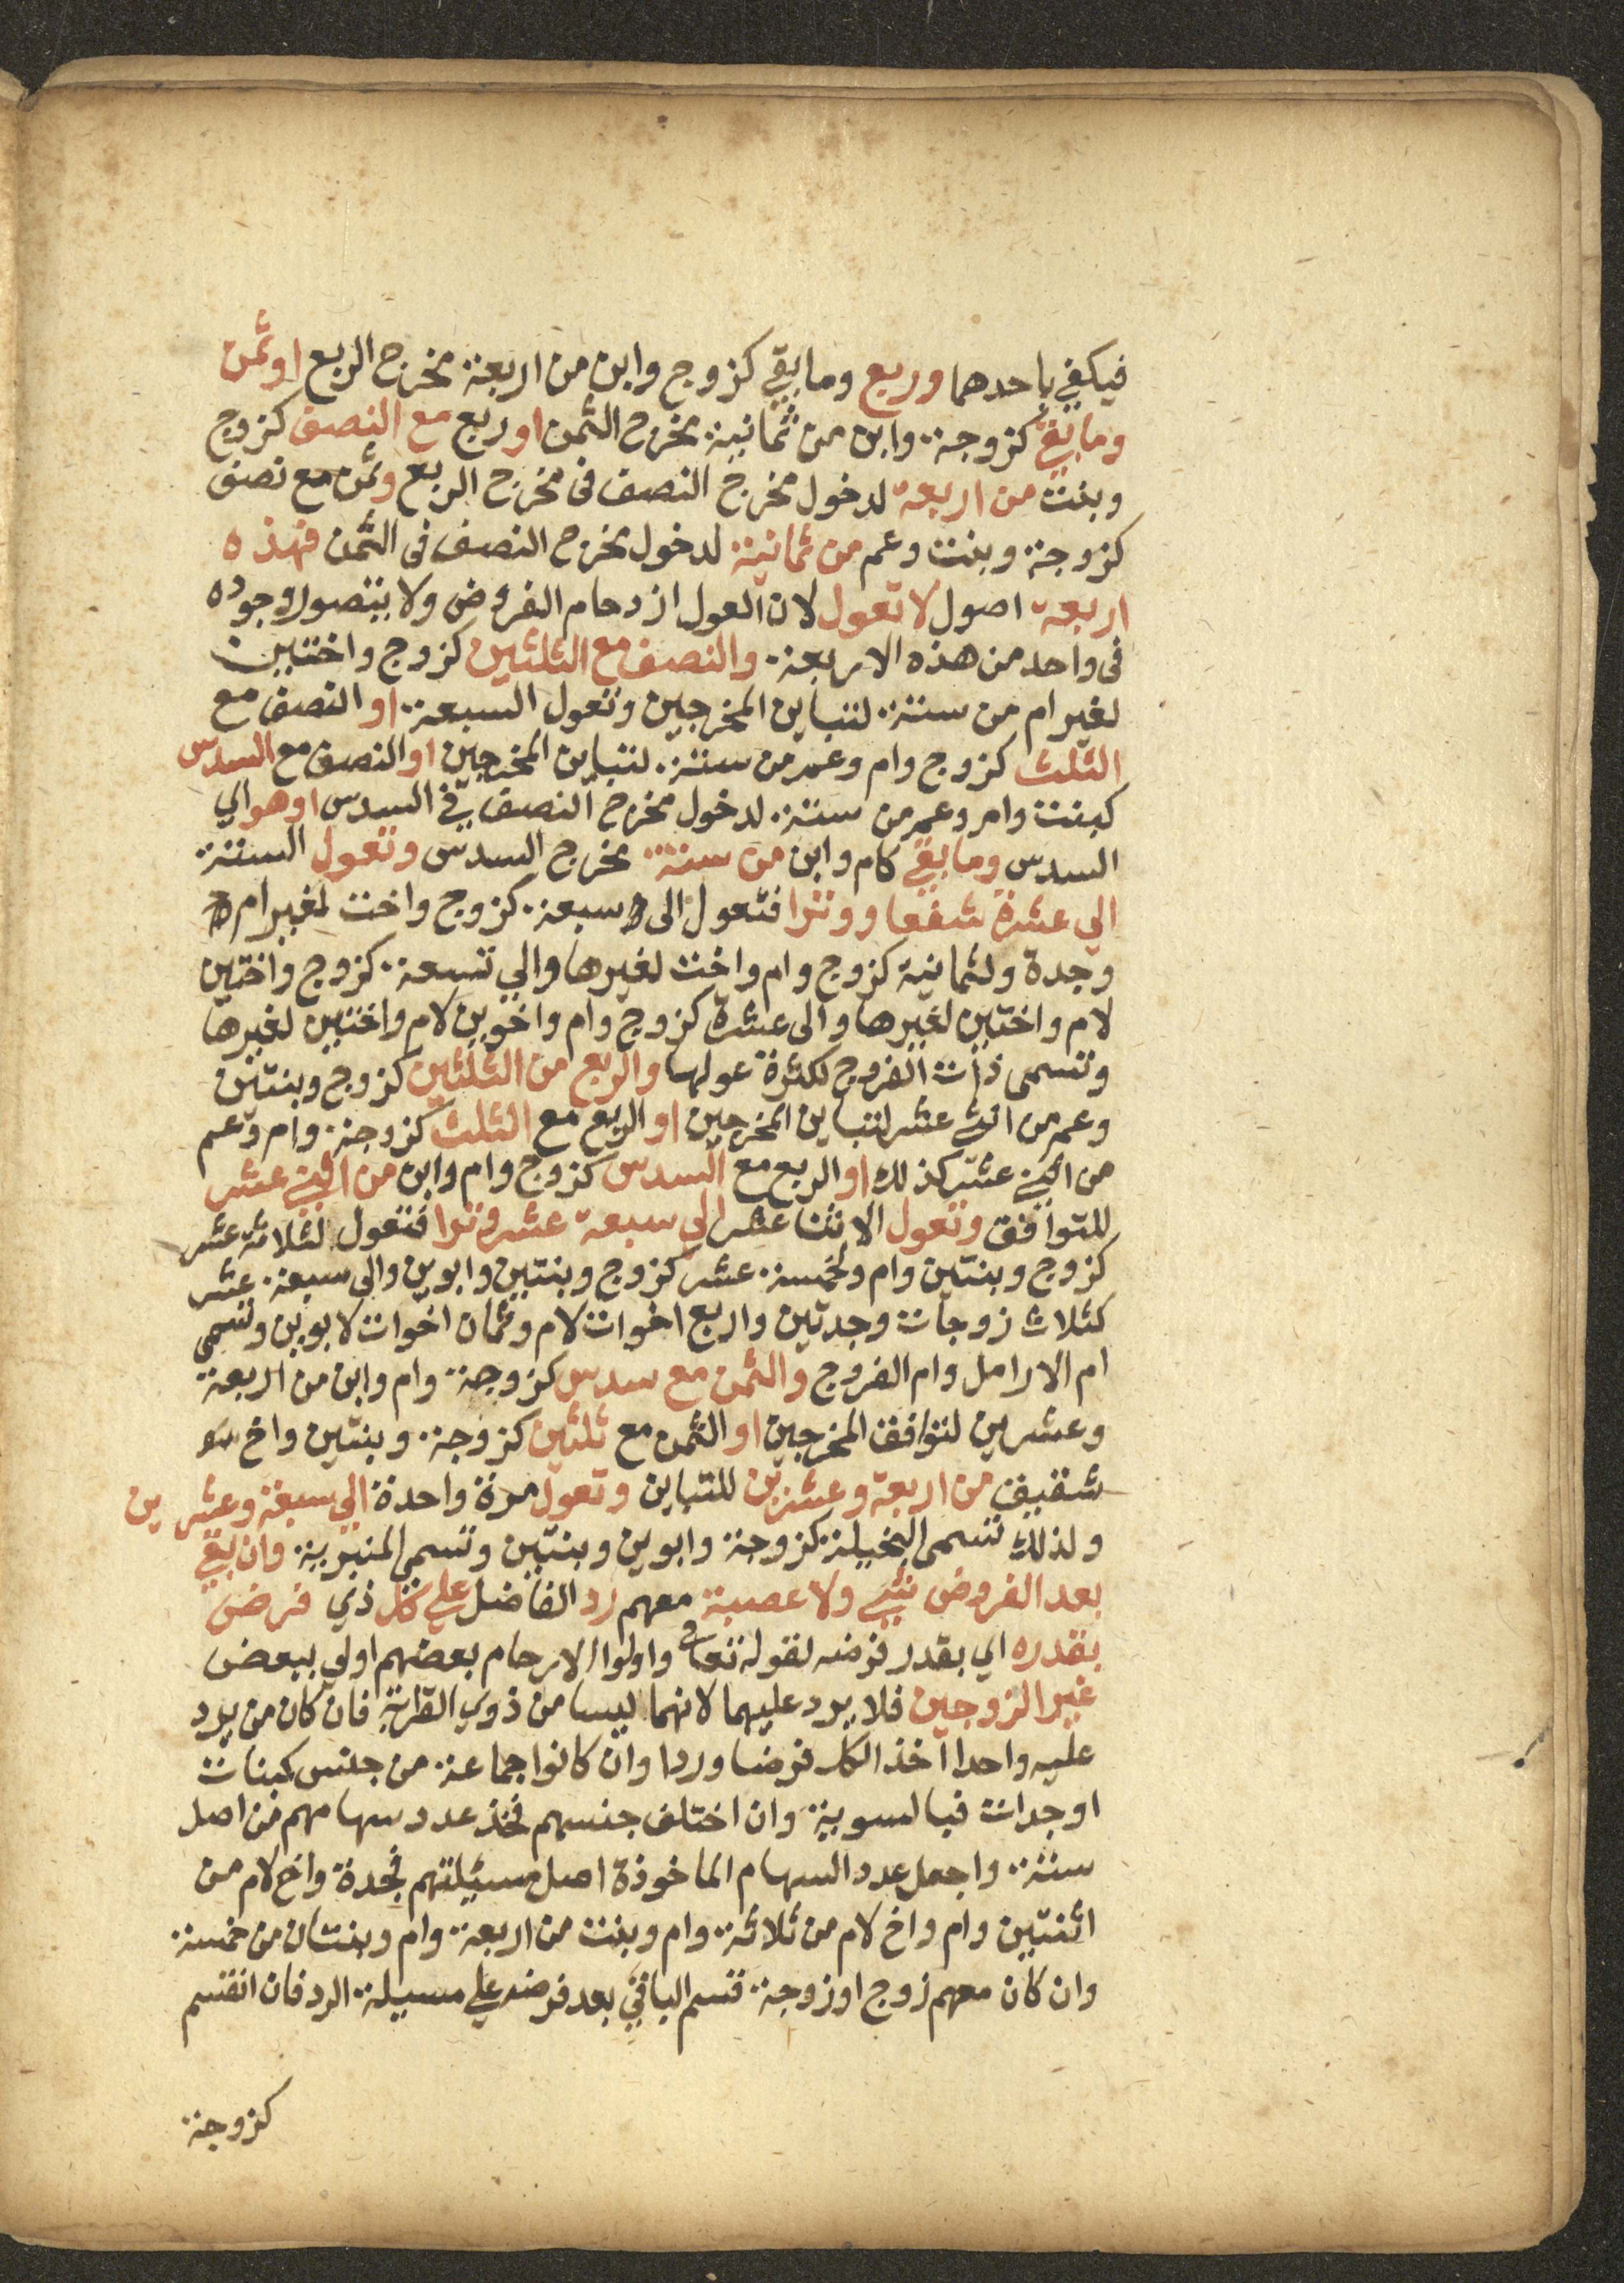 فيكفي باحدهما وربع وما بقي كزوج وابن من اربعة مخرج الربع او ثمن
وما بقي كزوجة وابن من ثمانية مخرج الثمن او ربع مع النصف كزوج
وبنت من اربعة لدخول مخرج النصف في مخرج الربع وثمن مع نصف
كزوجة وبنت وعم من ثمانية لدخول مخرج النصف في الثمن فهذه
اربعة اصول لا تعول لان العول ازدحام الفروض ولا يتصور وجوده
في واحد من هذه الاربعة والنصف مع الثلثين كزوج واختين
لغير ام من ستة لتباين المخرجين وتعول السبعة او النصف مع
الثلث كزوج وام وعم من ستة لتباين المخرجين او النصف مع السدس
كبنت وام وعم من ستة لدخول مخرج النصف في السدس او هو اي
السدس وما بقي كام وابن من ستة مخرج السدس وتعول الستة
الي عشرة شفعا ووترا فتعول الى سبعة كزوج واخت لغير ام
وجدة ولثمانية كزوج وام واخت لغيرها والي تسعة كزوج واختين
لام واختين لغيرها والى عشرة كزوج وام واخوين لام واختين لغيرها
وتسمى ذات الفروج لكثرة عولها والربع من الثلثين كزوج وبنتين
وعم من اثني عشر لتباين المخرجين او الربع مع الثلث كزوجة وام وعم
من اثني عشر كذلك او الربع مع السدس كزوج وام وابن من اثني عشر
للتوافق وتعول الاثنا عشر الي سبعة عشر وترا فتعول لثلاثة عشر
كزوج وبنتين وام ولخمسة عشر كزوج وبنتين وابوين والي سبعة عشر
كثلاث زوجات وجدتين واربع اخوات لام وثمان اخوات لابوين وتسمى
ام الارامل وام الفروج والثمن مع سدس كزوجة وام وابن من اربعة
وعشرين لتوافق المخرجين او الثمن مع ثلثين كزوجة وبنتين واخ
شقيق من اربعة وعشرين للتباين وتعول مرة واحدة الي سبعة وعشرين
ولذلك تسمى البخيلة كزوجة وابوين وبنتين وتسمى المنبرية وان بقي
بعد الفروض شيء ولا عصبة معهم رد الفاضل علي كل ذي فرض
بقدره اي بقدر فرضه لقوله تعالى واولوا الارحام بعضهم اولي ببعض
غير الزوجين فلا يرد عليهما لانهما ليسا من ذوي القرابة فان كان من يرد
عليه واحدا اخذ الكل فرضا وردا وان كانوا جماعة من جنس كبنات
او جدات فبالسوية وان اختلف جنسهم فخذ عدد سهامهم من اصل
ستة واجعل عدد السهام الماخوذة اصل مسئيلتهم فجدة واخ لام من
اثنتين وام واخ لام من ثلاثة وام وبنت من اربعة وام وبنتان من خمسة
وان كان معهم زوج او زوجة قسم الباقي بعد فرضه علي مسيلة الرد فان انقسم
كزوجة